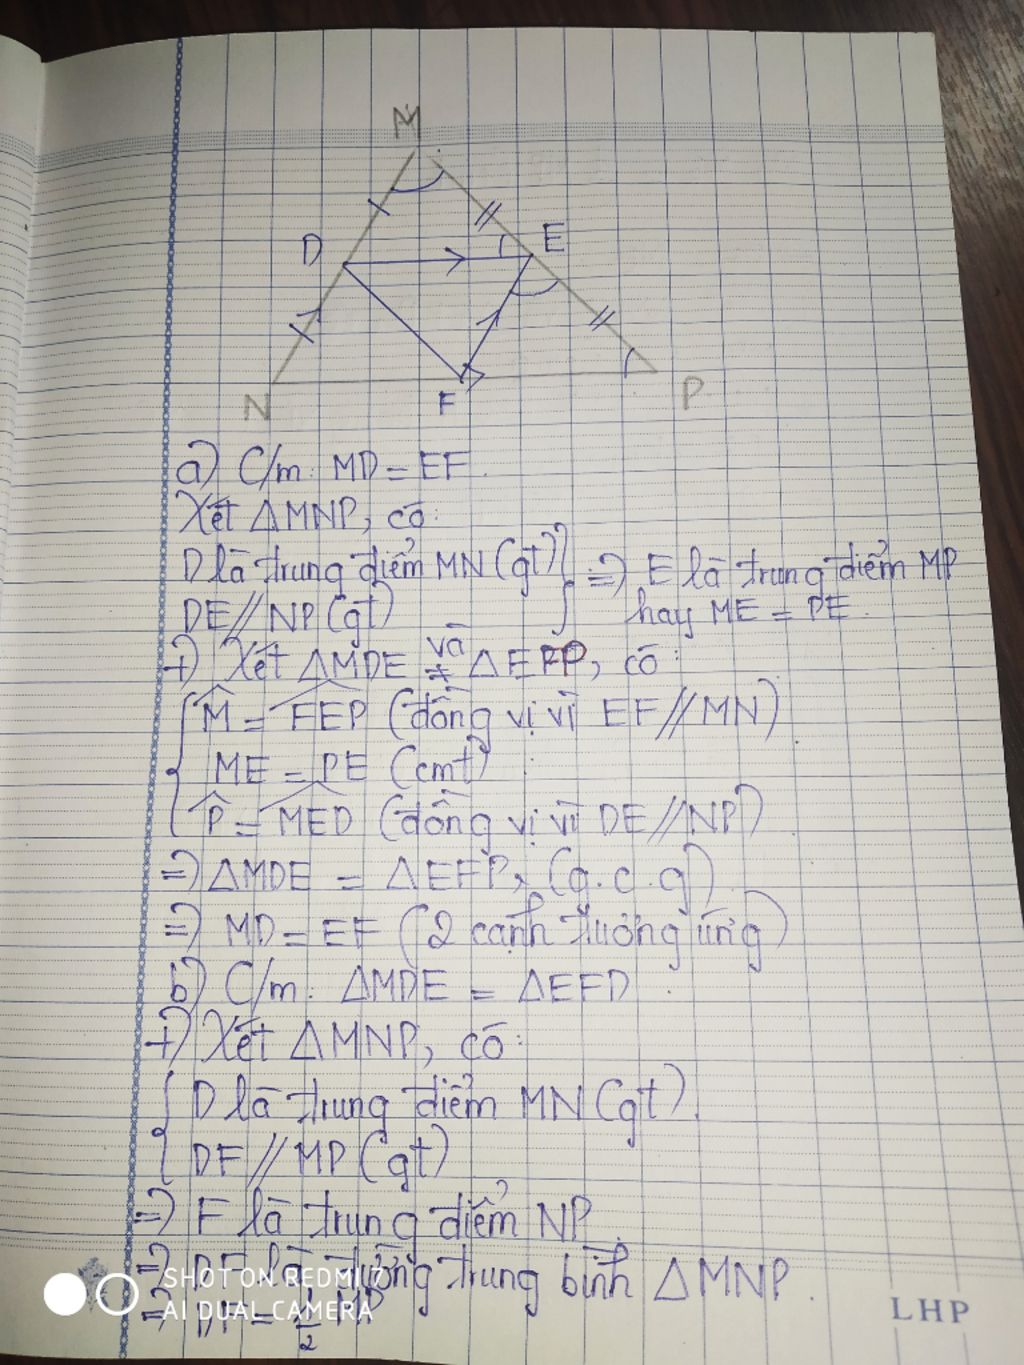 M
D
E
N
F
P
a) C/m: MD = EF.
Xét ΔMNP, có:
D là trung điểm MN (gt)
DE // NP (gt)
} => E là trung điểm MP
hay ME = PE.
+) Xét ΔMDE và ΔEFP, có:
M̂ = FEP̂ (đồng vị vì EF // MN)
ME = PE (cmt)
P̂ = MED̂ (đồng vị vì DE // NP)
=> ΔMDE = ΔEFP, (g.c.g)
=> MD = EF (2 cạnh tương ứng)
b) C/m: ΔMDE = ΔEFD.
+) Xét ΔMNP, có:
{ D là trung điểm MN (gt).
DF // MP (gt)
=> F là trung điểm NP.
=> DF là đường trung bình ΔMNP.
=> DF = 1/2 MP
SHOT ON REDMI 7
AI DUAL CAMERA
LHP